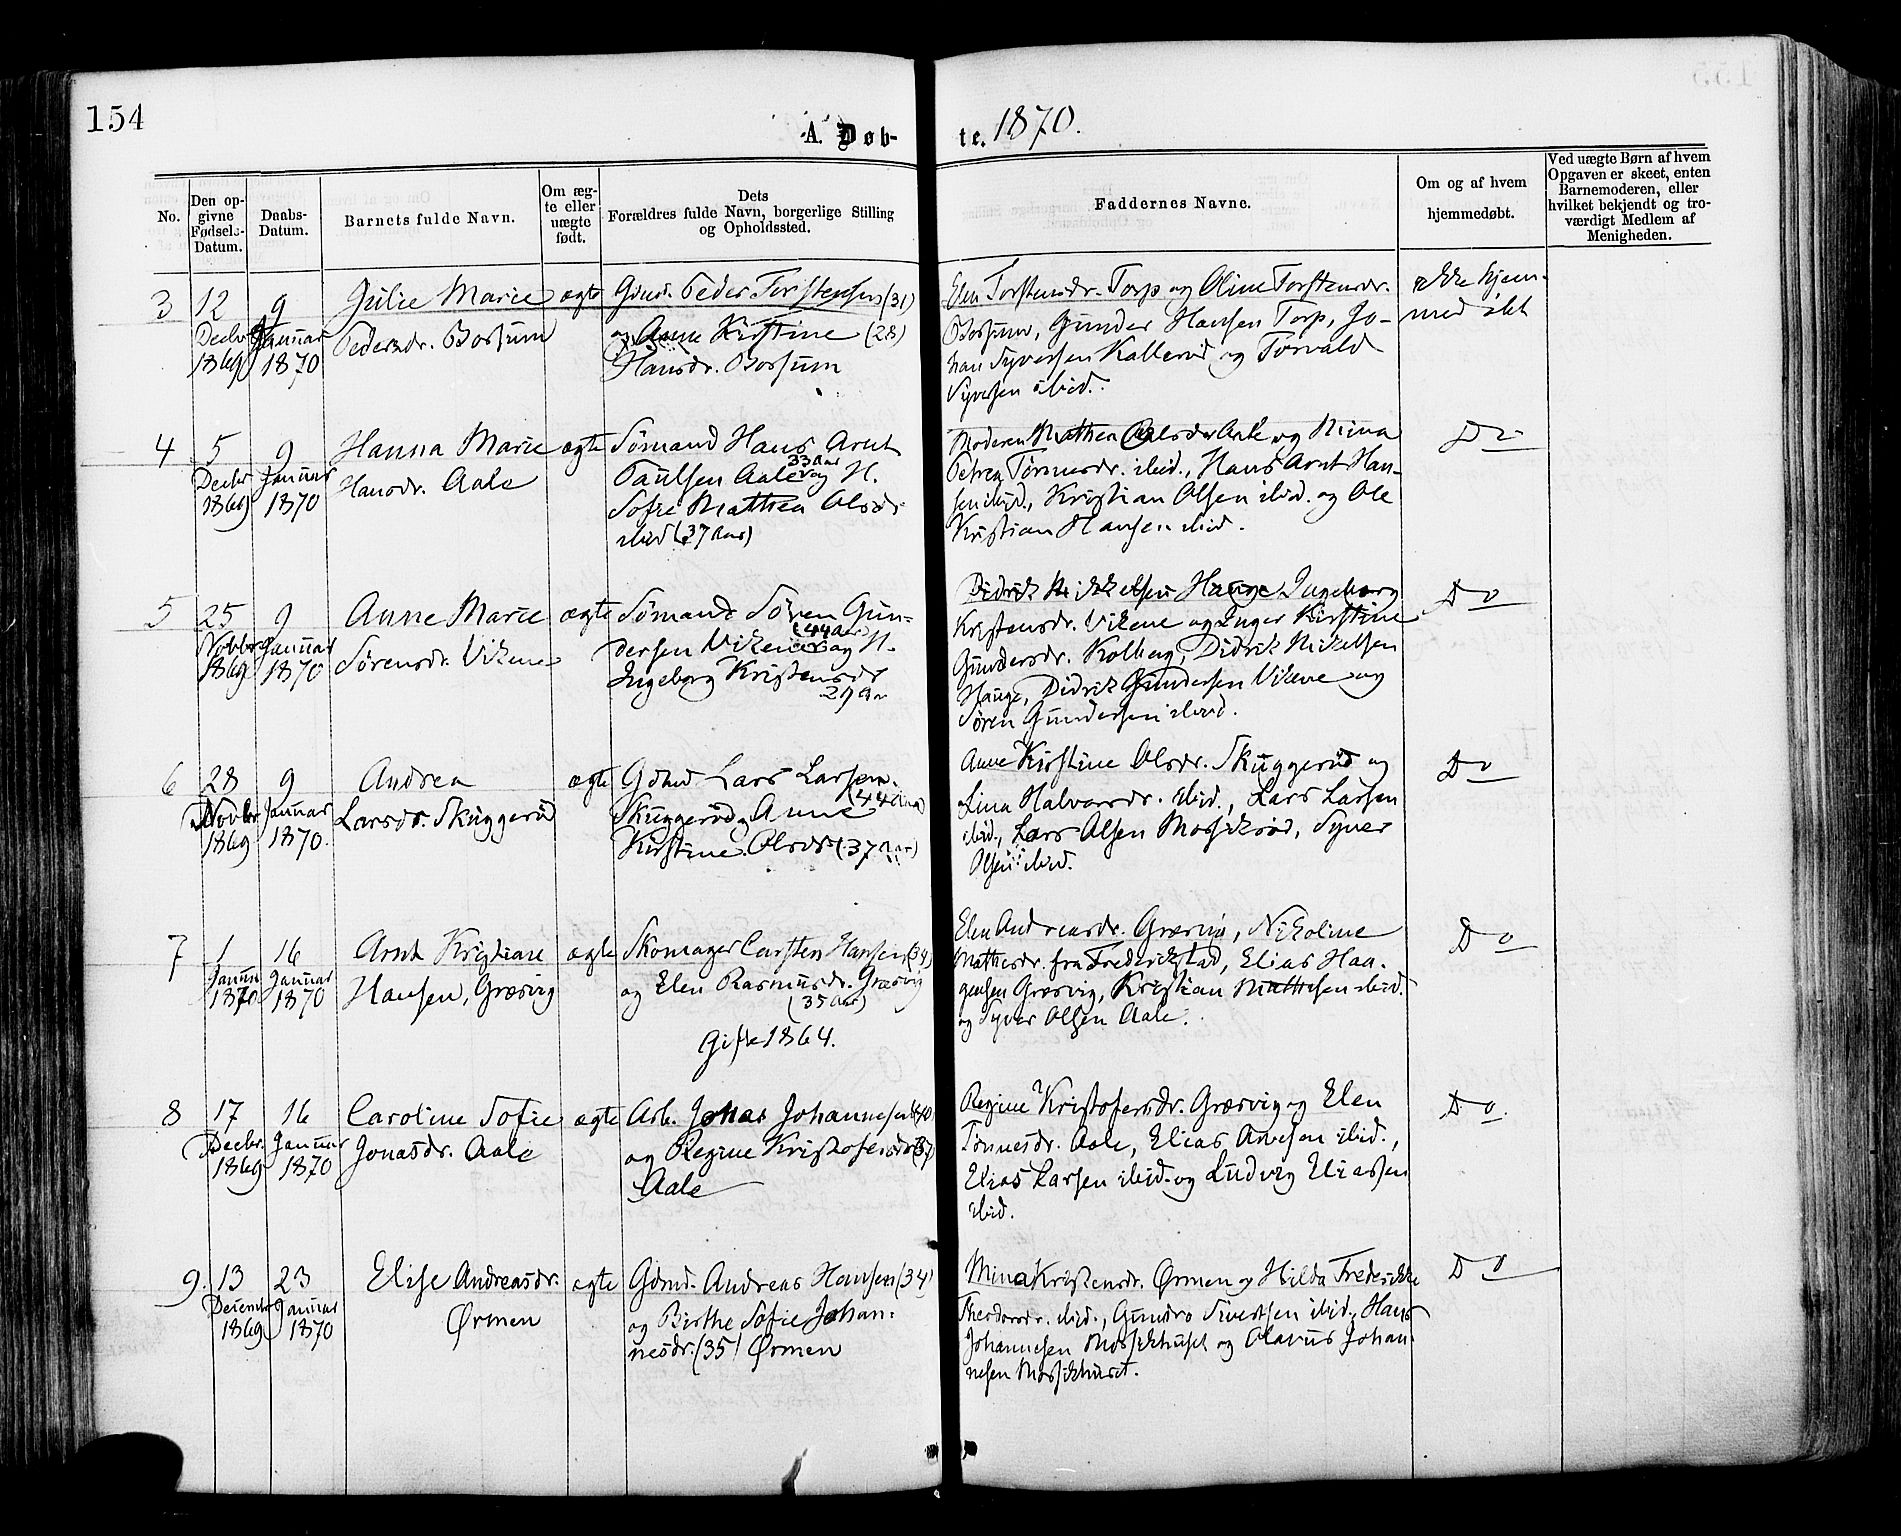 154
A. Døb-
te. 1870.
No.
Den op-
givne
Fødsels-
Datum.
Daabs-
Datum.
Barnets fulde Navn.
Om æg-
te eller
uægte
født.
Dets
Forældres fulde Navn, borgerlige Stilling
og Opholdssted.
Faddernes Navne.
Om og af hvem
hjemmedøbt.
Ved uægte Børn af hvem
Opgaven er skeet, enten
Barnemoderen, eller
hvilket bekjendt og tro-
værdigt Medlem af
Menigheden.
3
12
Decbr
1869
9
Januar
1870
Julie Marie
Pedersdr. Borsum
ægte
Gdmd. Peder Torstensen (31)
og Anne Kirstine (28)
Hansdr. Borsum
Elen Torstensdr. Torp og Oline Torstensdr.
Borsum, Gunder Hansen Torp, Jo-
han Syversen Kallerød og Torvald
Syversen ibid.
ikke hjem-
med øbt
4
5
Decbr
1869
9
Januar
1870
Hanna Marie
Hansdr. Aale
ægte
Sömand Hans Arnt
Paulsen Aale 33 Aar og H.
Sofie Mathea Olsdr
ibid (37 Aar)
Moderen Mathea Olsdr Aale og Mina
Petrea Tønnesdr. ibid., Hans Arnt Han-
sen ibid., Kristian Olsen ibid. og Ole
Kristian Hansen ibid.
Do
5
25
Novbr
1869
9
Januar
1870
Anne Marie
Sørensdr. Vikene
ægte
Sömand Søren Gun-
dersen Vikene (44 Aar) og H.
Ingeborg Kristensdr
29 Aar
Didrik Nikkelsen Hauge Ingeborg
Kristensdr. Vikene og Inger Kirstine
Gundersdr. Kolberg, Didrik Nikelsen
Hauge, Didrik Gundersen Vikene og
Søren Gundersen ibid.
Do
6
28
Novbr
1869
9
Januar
1870.
Andrea
Larsdr. Skuggerød
ægte
Gdmd Lars Larsen
(44 Aar)
Skuggerød og Anne
Kirstine Olsdr. (37 Aar)
Anne Kirstine Olsdr. Skuggerød og
Lina Halvorsdr. ibid., Lars Larsen
ibid., Lars Olsen Mossikrød, Syver
Olsen ibid.
Do
7
1
Januar
1870
16
Januar
1870
Arnt Kristian
Hansen, Græsvig
ægte
Skomager Carsten Hansen (34)
og Elen Rasmusdr. Græsvig
(35 Aar)
Gifte 1864.
Elen Andreasdr. Græsvig, Nikoline
Mathesdr. fra Frederikstad, Elias Haa-
gensen Græsvig, Kristian Mathisen ibid.
og Syver Olsen Aale.
Do
8
17
Decbr.
1869
16
Januar
1870
Caroline Sofie
Jonasdr. Aale
ægte
Arb. Jonas Johannesen (40
og Regine Kristofersdr (37)
Aale
Regine Kristofersdr. Græsvig og Elen
Tønnesdr. Aale, Elias Arvesen ibid.,
Elias Larsen ibid. og Ludvig Eliassen
ibid.
Do.
9.
13
Decembr
1869
23
Januar
1870
Elise Andreasdr.
Ørmen
ægte
Gdmd. Andreas Hansen (34)
og Birthe Sofie Johan-
nesdr. (35) Ørmen
Mina Kristensdr. Ørmen og Hilda Frederikke
Theodorsdr. ibid., Gundro Sivertsen ibid., Hans
Johannesen Mossikhuset og Olavus Johan-
nesen Mossikhuset.
Do